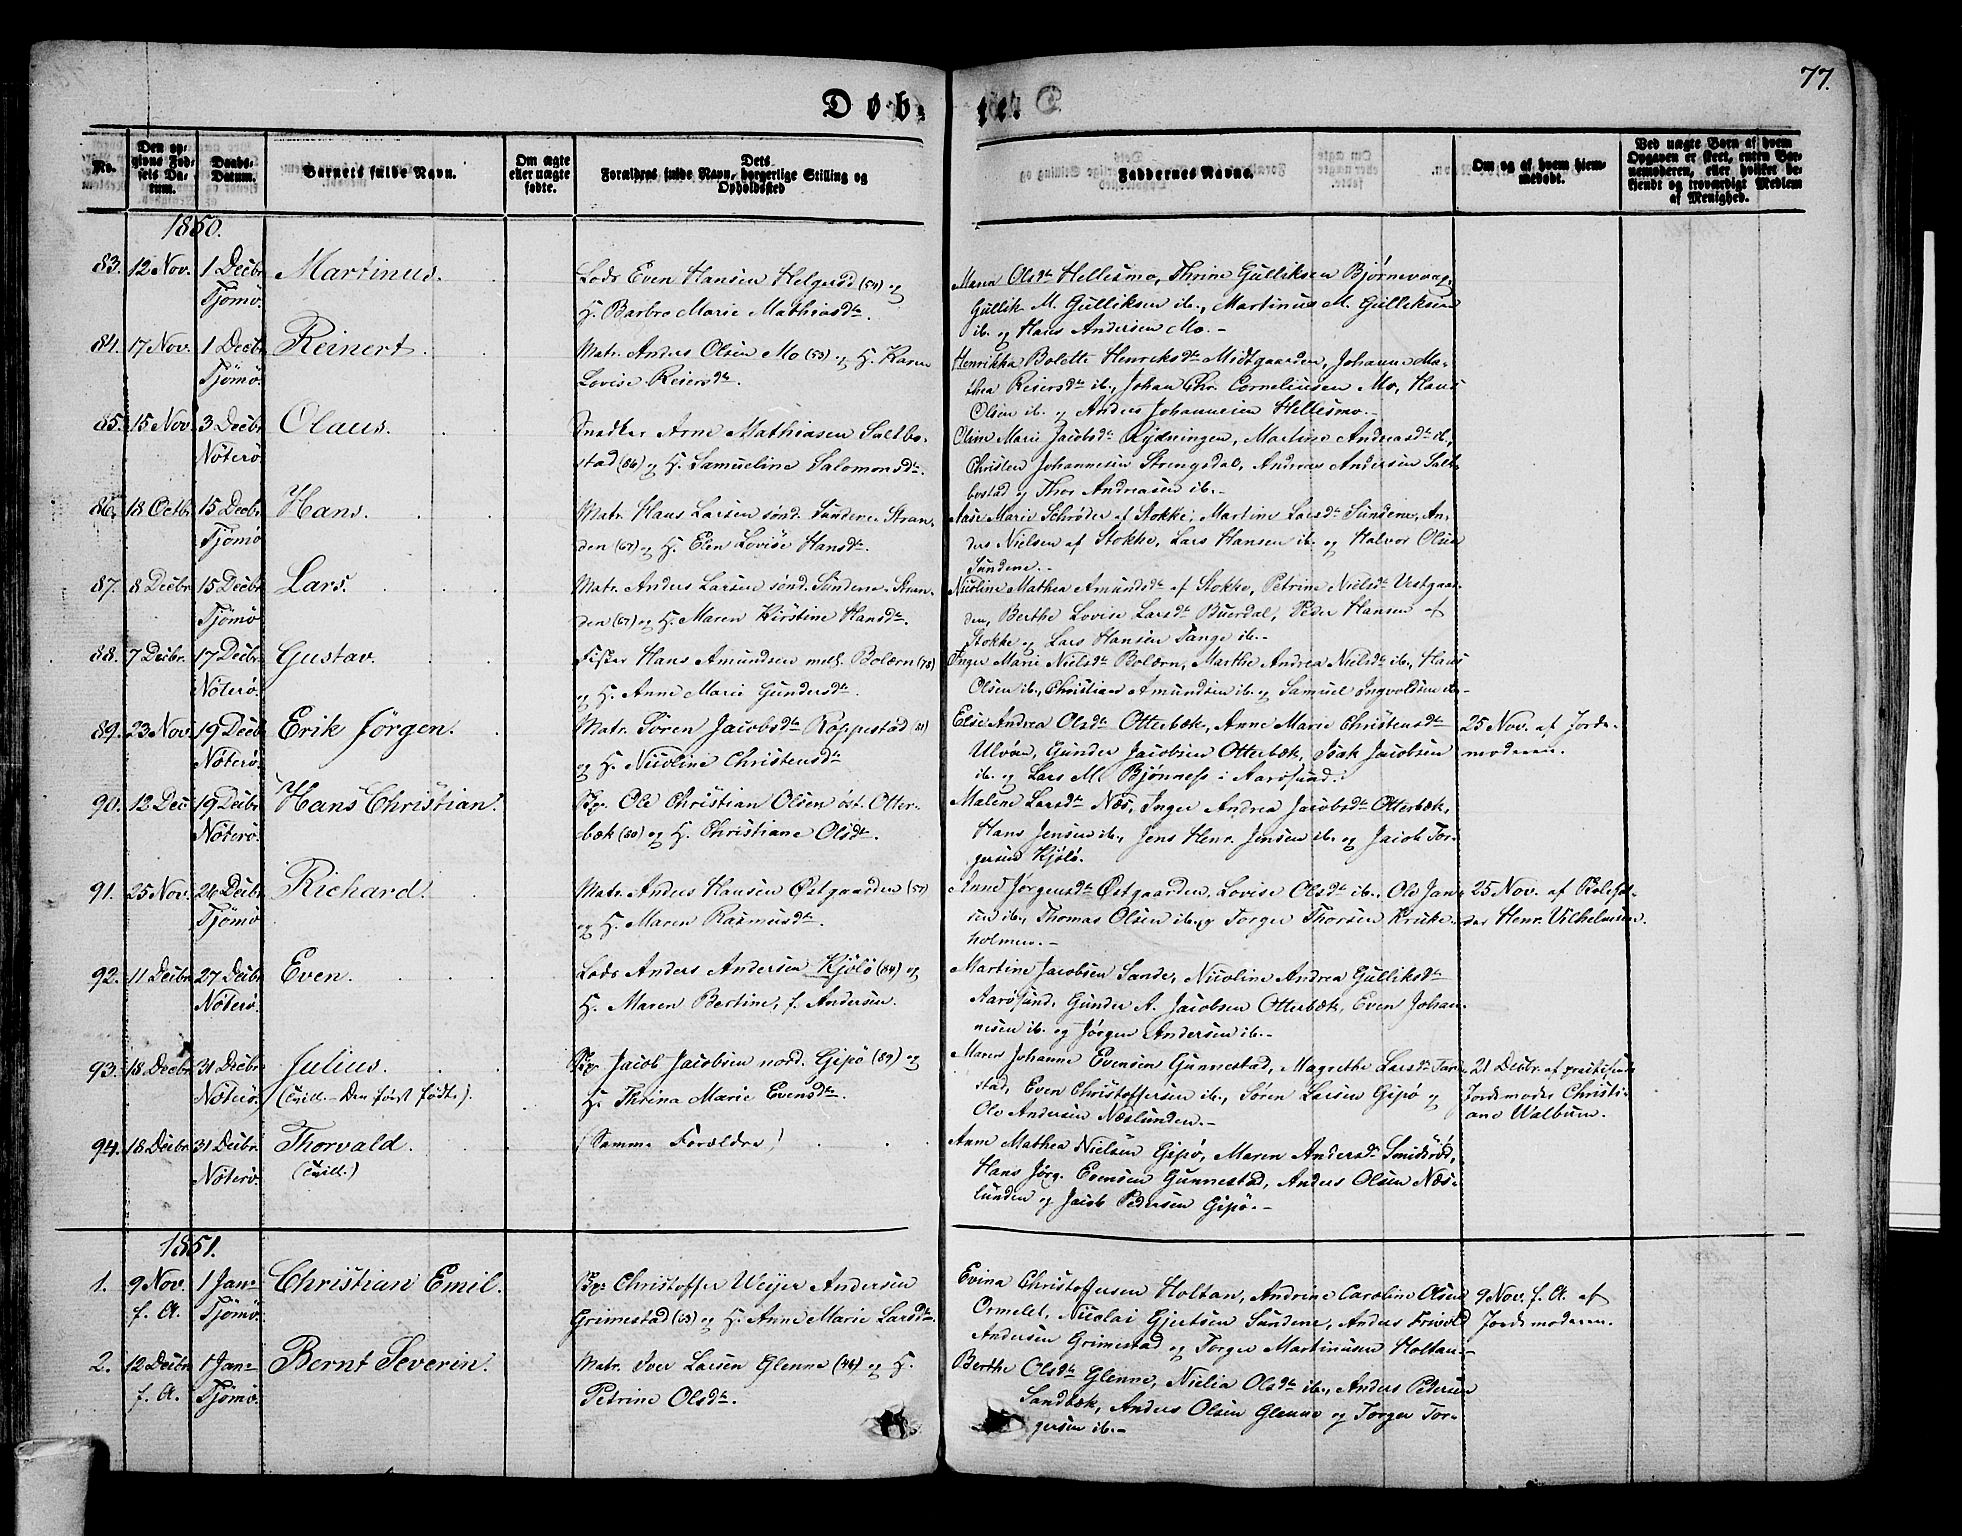 77.
Døb- te.
No.
Den op-
givne Fød-
sels Da-
tum.
Daabs-
Datum.
Barnets fulde Navn.
Om ægte
eller uægte
fødte.
Dets
Forældres fulde Navn, borgerlige Stilling og
Opholdssted
Faddernes Navne.
Om og af hvem hjem-
medøbt.
Ved uægte Børn af hvem
Opgaven er skeet, enten Bar-
nemoderen, eller hvilket be-
kjendt og troværdigt Medlem
af Menighed.
1850.
83. 12 Nov. 1 Decbr. Tjömö. Martinus.
Lods Even Hansen Helgerød (54) og
H. Barbro Marie Mathiasdtr.
Maren Olsdtr Hellesmo, Thrine Gulliksen Bjørnevaag,
Gullik M. Gulliksen ib., Martinus M. Gulliksen
ib. og Hans Andersen Mo.-
84. 17 Nov. 1 Decbr. Tjömö. Reinert.
Matr. Anders Olsen Mo (53) og H. Karen
Lovise Reiersdtr.
Henrikka Bolette Henriksdtr Midtgaarden, Johanne Ma-
thea Reiersdtr ib., Johan Chr. Corneliussen Mo, Hans
Olsen ib. og Anders Johannesen Hellesmo.-
85. 15 Nov. 3 Decbr. Nöterö. Olaus.
Snedker Arne Mathiasen Saltbo-
stad (86) og H. Samueline Salomonsdtr.
Oline Marie Jacobsdtr Rydningen, Martine Andreasdtr ib.,
Christen Johannesen Strengsdal, Andreas Andersen Salt-
bostad og Thor Andreasen ib.-
86. 18 Octbr. 15 Decbr. Tjömö. Hans.
Matr. Hans Larsen sönd. Sundene-Stran-
den (67) og H. Elen Lovise Hansdtr.
Aase Marie Schrøder af Stokke, Martine Larsdtr Sundene, An-
ders Nielsen af Stokke, Lars Hansen ib. og Halvor Olsen
Sundene.-
87. 8 Decbr. 15 Decbr. Tjömö. Lars.
Matr. Anders Larsen sönd. Sundene-Stran-
den (67) og H. Maren Kirstine Hansdtr.
Nicoline Mathea Amundsdtr af Stokke, Petrine Nielsdtr Vestgaar-
den, Berthe Lovise Larsdtr Buerdal, Peder Hansen af
Stokke og Lars Hansen Tange ib.-
88. 7 Decbr. 17 Decbr. Nöterö. Gustav.
Fisker Hans Amundsen mell. Bolærn (78)
og H. Anne Marie Gundersdtr.
Inger Marie Nielsdtr Bolærn, Marthe Andrea Nielsdtr ib., Hans
Olsen ib., Christian Amundsen ib. og Samuel Ingvoldsen ib.-
89. 23 Nov. 19 Decbr. Nöterö. Erik Jörgen.
Matr. Sören Jacobsdtr Roppestad (81)
og H. Nicoline Christensdtr
Else Andrea Olsdtr Otterbæk, Anne Marie Christensdtr
Ulvöen, Gunder Jacobsen Otterbæk, Isak Jacobsen
ib. og Lars M. Bjönness i Aarösund.
25 Nov. af Jorde-
moderen.
90. 12 Dec. 19 Decbr. Nöterö. Hans Christian.
Sp. Ole Christian Olsen öst. Otter-
bæk (80) og H. Christiane Olsdtr.
Malene Larsdtr Næs, Inger Andrea Jacobsdtr Otterbæk,
Hans Jensen ib., Jens Henr. Jensen ib. og Jacob Tor-
gersen Kjölö.
91. 25 Nov. 26 Decbr. Tjömö. Richard.
Matr. Anders Hansen Østgaarden (57)
og H. Maren Rasmusdtr.
Anne Jørgensdtr Østgaarden, Lovise Olsdtr ib., Ole Jan-
sen ib., Thomas Olsen ib. og Torger Thorsen Krukke-
holmen.-
25 Nov. af
Henr. Vilhelmsen.
92. 11 Decbr. 27 Decbr. Nöterö. Even.
Lods Anders Andersen Kjölö (84) og
H. Maren Bertine, f. Andersen.
Martine Jacobsen Sande, Nicoline Andrea Gulliksdtr
Aarösund, Gunder A. Jacobsen Otterbæk, Even Johan-
nesen ib. og Jörgen Andersen ib.-
93. 18 Decbr. 31 Decbr. Nöterö. Julius.
(Tvill. - Den först födte).
Sp. Jacob Jacobsen nord. Gipö (89) og
H. Thrina Marie Evensdtr.
Maren Johanne Evensen Gunnestad, Magrethe Larsdtr Tor-
stad, Even Christoffersen ib., Søren Larsen Gipö og
Ole Andersen Næslunden.-
21 Decbr. af praktiserende
Jordemoder Christi-
ane Walbuen.
94. 18 Decbr. 31 Decbr. Nöterö. Thorvald.
(Tvill.)
(Samme Forældre)
Anne Mathea Nielsen Gipö, Maren Andersdtr Smidsröd,
Hans Jörg. Evensen Gunnestad, Anders Olsen Næs-
lunden og Jacob Pedersen Gipö.-
1851.
1. 9 Nov. f. A. 1 Jan. Tjömö. Christian Emil.
Sp. Christoffer Weyer Andersen
Grimestad (63) og H. Anne Marie Larsdtr.
Evina Christoffersen Holtan, Andrine Caroline Olsen
Ormelet, Nicolai Gjertsen Sundene, Anders Frivold
Andersen Grimestad og Torger Martinusen Holtan.-
9 Nov. f. A. af
Jordemoderen.
2. 12 Decbr. f. A. 1 Jan. Tjömö. Bernt Severin.
Matr. Iver Larsen Glenne (46) og H.
Petrine Olsdtr.
Berthe Olsdtr Glenne, Nielia Olsdtr ib., Anders Pedersen
Sandbæk, Anders Olsen Glenne og Torger Tor-
gersen ib.-